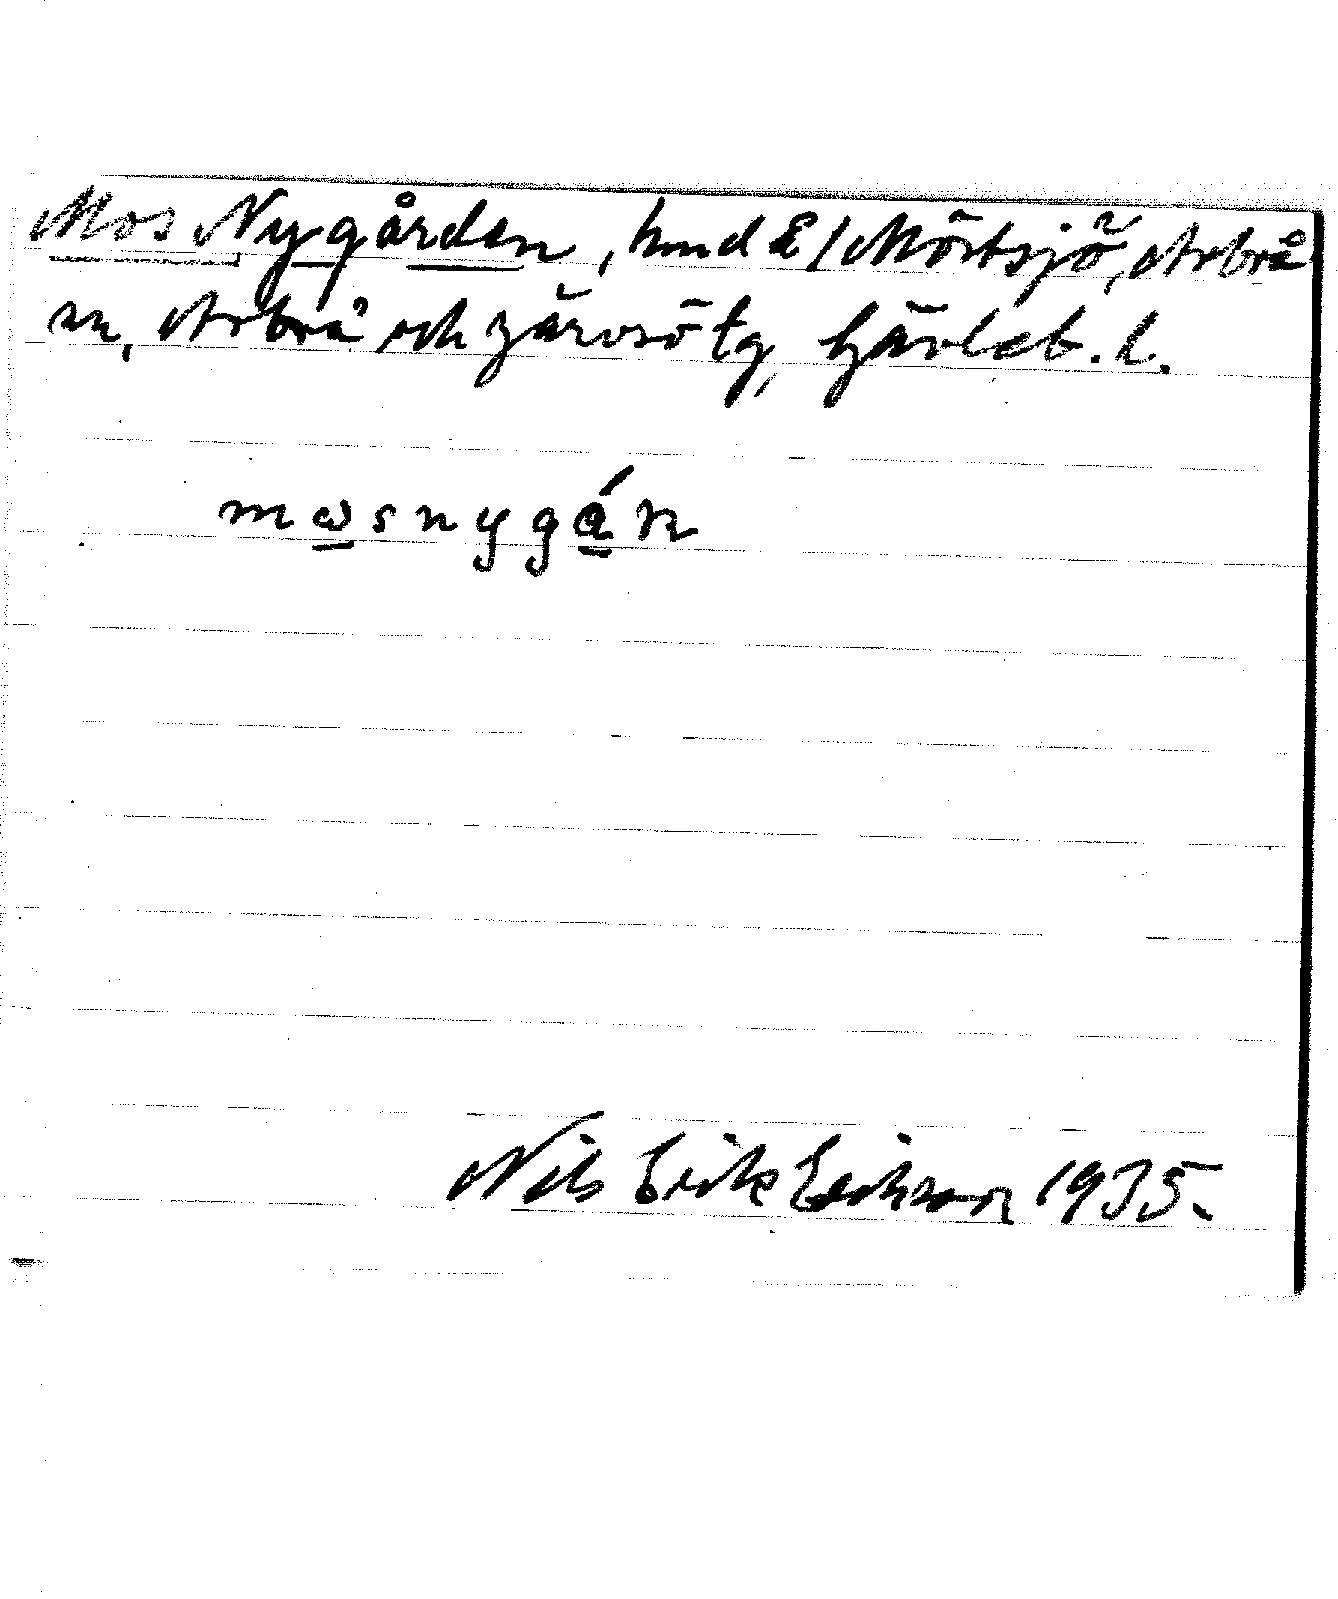 Mos Nygården, hmd E/Mörtsjö, Arbrå
sn, Arbrå och Järvsö tg, Gävleb. l.
mωsnygán
Nils Erik Erikson 1935.